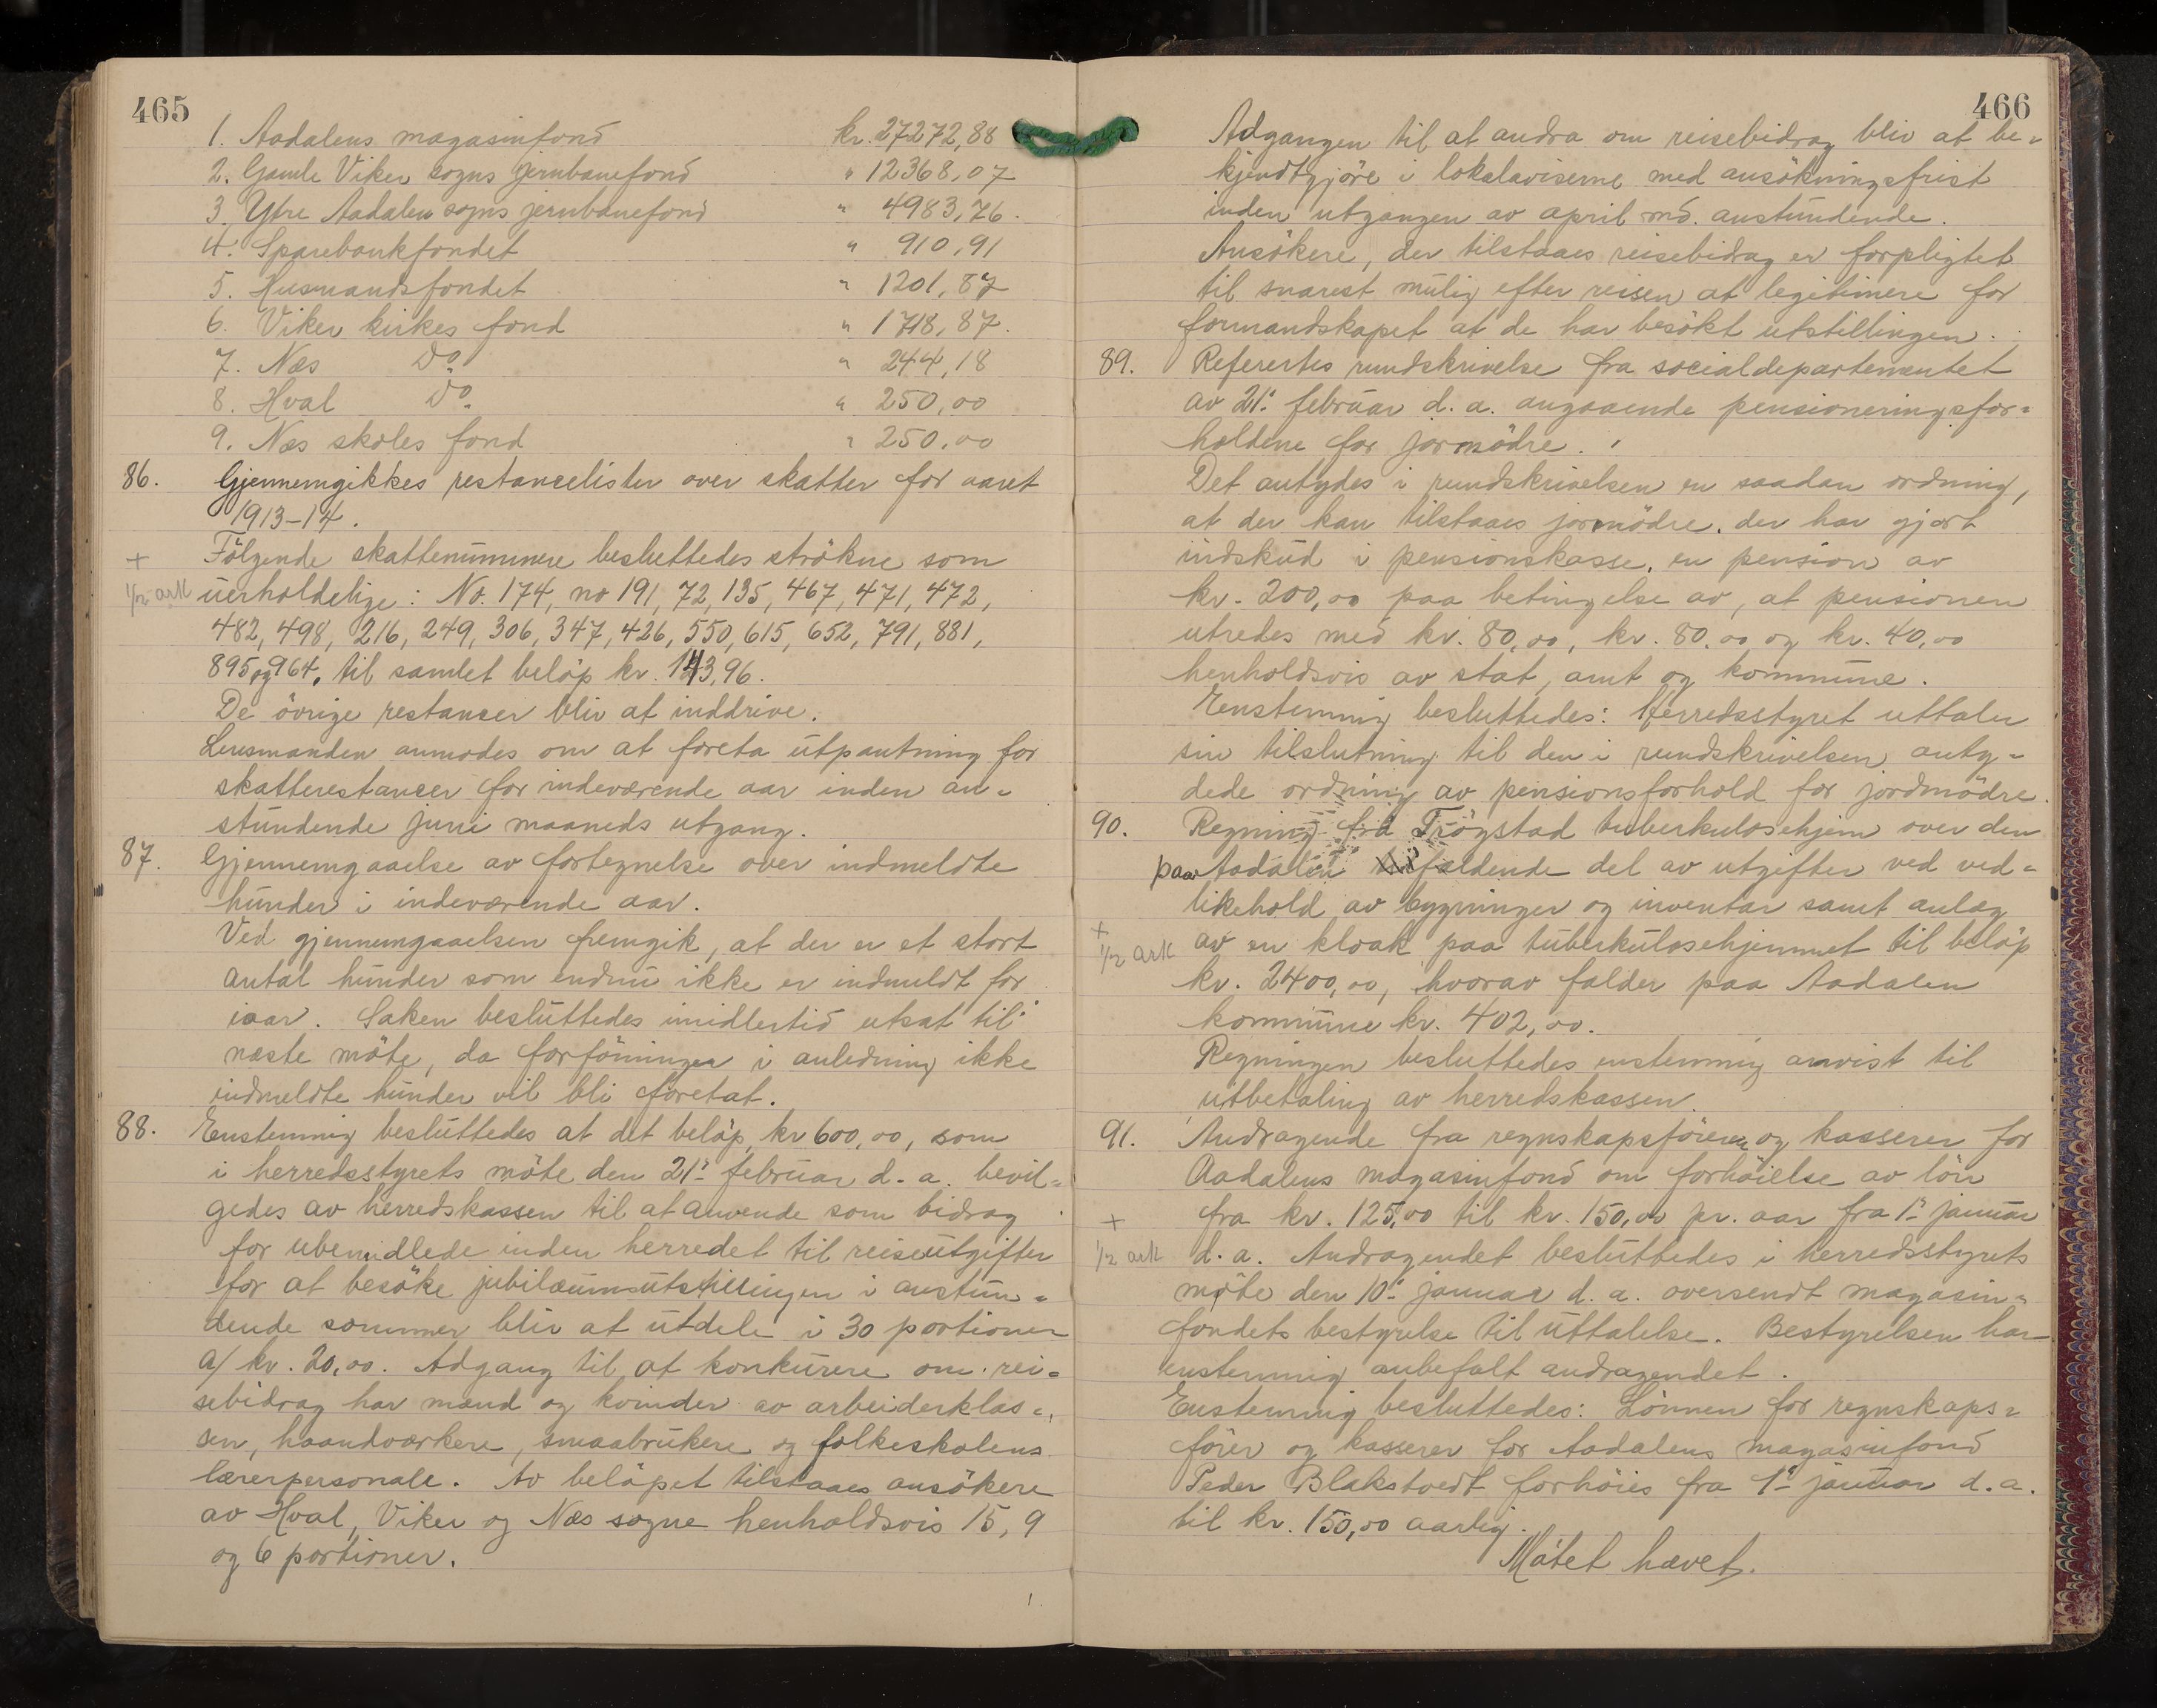 465
1. Aadalens magasinfond kr. 27272,88
2. Gamle Viker sogns jernbanefond " 12368,07
3. Ytre Aadalen sogns jernbanefond " 4983,76.
4. Sparebankfondet " 910,91
5. Husmandsfondet " 1201,87
6. Viker kirkes fond " 1718,87.
7. Næs Do " 244,18
8. Hval Do " 250,00
9. Næs skoles fond " 250,00
86. Gjennemgikkes restancelister over skatter for aaret
1913-14.
+ Følgende skattenummere besluttedes strøkne som
1/2 ark uerholdelige: No. 174, no 191, 72, 135, 467, 471, 472,
482, 498, 216, 249, 306, 347, 426, 550, 615, 652, 791, 881,
895 og 964, til samlet beløp kr. 143,96.
De övrige restancer bliv at inddrive.
Lensmanden anmodes om at foreta utpantning for
skatterestancer for indeværende aar inden an=
stundende juni maaneds utgang.
87. Gjennemgaaelse av fortegnelse over indmeldte
hunder i indeværende aar.
Ved gjennemgaaelsen fremgik, at der er et stort
antal hunder som endnu ikke er indmeldt for
iaar. Saken besluttedes imidlertid utsat til
næste möte, da forföininger i anledning ikke
indmeldte hunder vil bli foretat.
88. Enstemmig besluttedes at det beløp, kr 600,00, som
i herredsstyrets möte den 21de februar d. a. bevil=
gedes av herredskassen til at anvende som bidrag
for ubemidlede inden herredet til reiseutgifter
for at besöke jubilæumsutstillingen i anstun=
dende sommer bliv at utdele i 30 portioner
a/ kr. 20,00. Adgang til at konkurere om rei=
sebidrag har mænd og kvinder av arbeiderklas=
sen, haandværkere, smaabrukere og folkeskolens
lærerpersonale. Av beløpet tilstaaes ansökere
av Hval, Viker og Næs sogne henholdsvis 15, 9
og 6 portioner.
466
Adgangen til at andra om reisebidrag bliv at be=
kjendtgjöre i lokalaviserne med ansökningsfrist
inden utgangen av april md. anstundende.
Ansökere, der tilstaaes reisebidrag er forpligtet
til snarest mulig efter reisen at legitimere for
formandskapet at de har besökt utstillingen.
89. Referertes rundskrivelse fra socialdepartementet
av 21de februar d. a. angaaende pensioneringsfor=
holdene for jormödre.
Det antydes i rundskrivelsen en saadan ordning,
at der kan tilstaaes jormödre, der har gjort
indskud i pensionskasse, en pension av
kr. 200,00 paa betingelse av, at pensionen
utredes med kr. 80,00, kr. 80,00 og kr. 40,00
henholdsvis av stat, amt og kommune.
Enstemmig besluttedes: Herredsstyret uttaler
sin tilslutning til den i rundskrivelsen anty=
dede ordning av pensionsforhold for jordmödre.
90. Regning fra Trögstad tuberkulosehjem over den
paa Aadalen faldende del av utgifter ved ved=
likehold av bygninger og inventar samt anlæg
+ 1/2 ark av en kloak paa tuberkulosehjemmet til beløp
kr. 2400,00, hvorav falder paa Aadalen
kommune kr. 402,00.
Regningen besluttedes enstemmig anvist til
utbetaling av herredskassen.
91. Andragende fra regnskapsförer og kasserer for
Aadalens magasinfond om forhöielse av lön
+ fra kr. 125,00 til kr. 150,00 pr. aar fra 1ste januar
1/2 ark d. a. Andragendet besluttedes i herredsstyrets
möte den 10de januar d. a. oversendt magasin=
fondets bestyrelse til uttalelse. Bestyrelsen har
enstemmig anbefalt andragendet.
Enstemmig besluttedes: Lönnen for regnskaps=
förer og kasserer for Aadalens magasinfond
Peder Blakstvedt forhöies fra 1ste januar d. a.
til kr. 150,00 aarlig.
Mötet hævet.